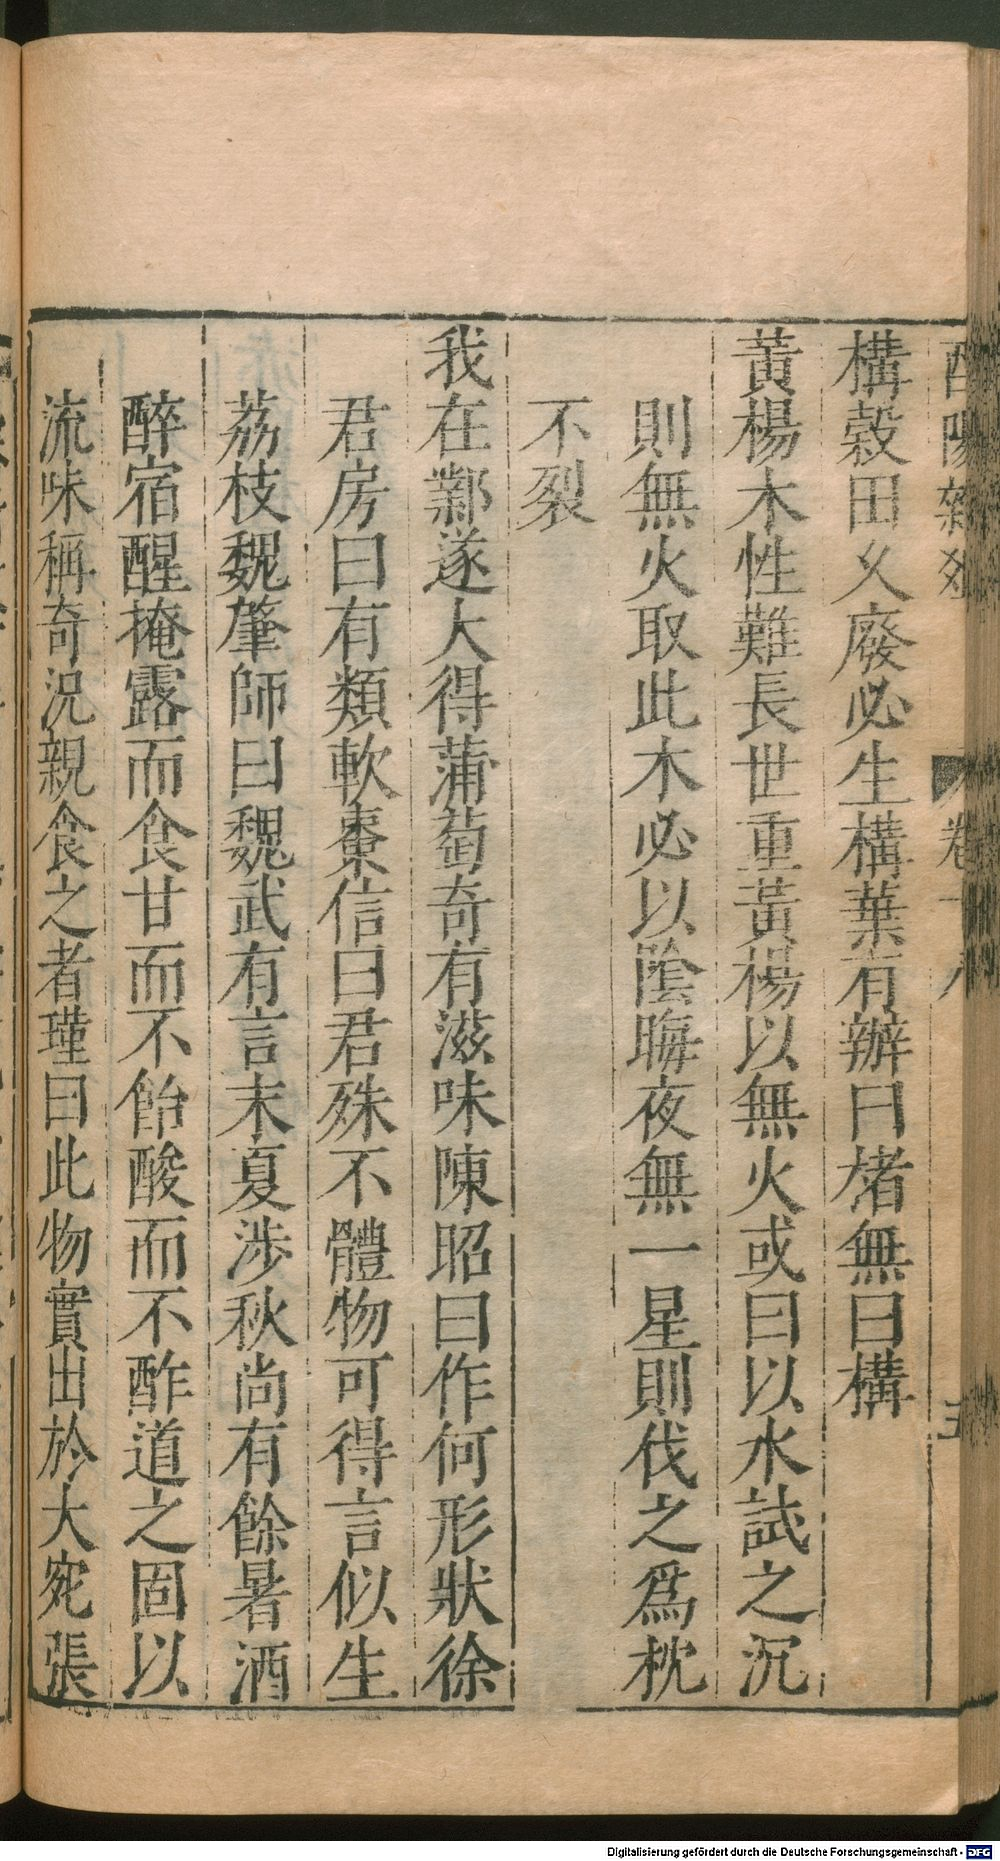 酉陽雜俎 卷十八 五
構榖田乆廢必生構葉有辦曰楮無曰構
黃楊木性難長世重黃楊以無火或曰以水試之沉
則無火取此木必以陰晦夜無一星則伐之爲枕
不裂
我在鄴遂大得蒲萄奇有滋味陳昭曰作何形狀徐
君房曰有類軟棗信曰君殊不體物可得言似生
荔枝魏肇師曰魏武有言末夏涉秋尚有餘暑酒
醉宿醒掩露而食甘而不飴酸而不酢道之固以
流味稱奇況親食之者瑾曰此物實出於大宛張
Digitalisierung gefördert durch die Deutsche Forschungsgemeinschaft - DFG